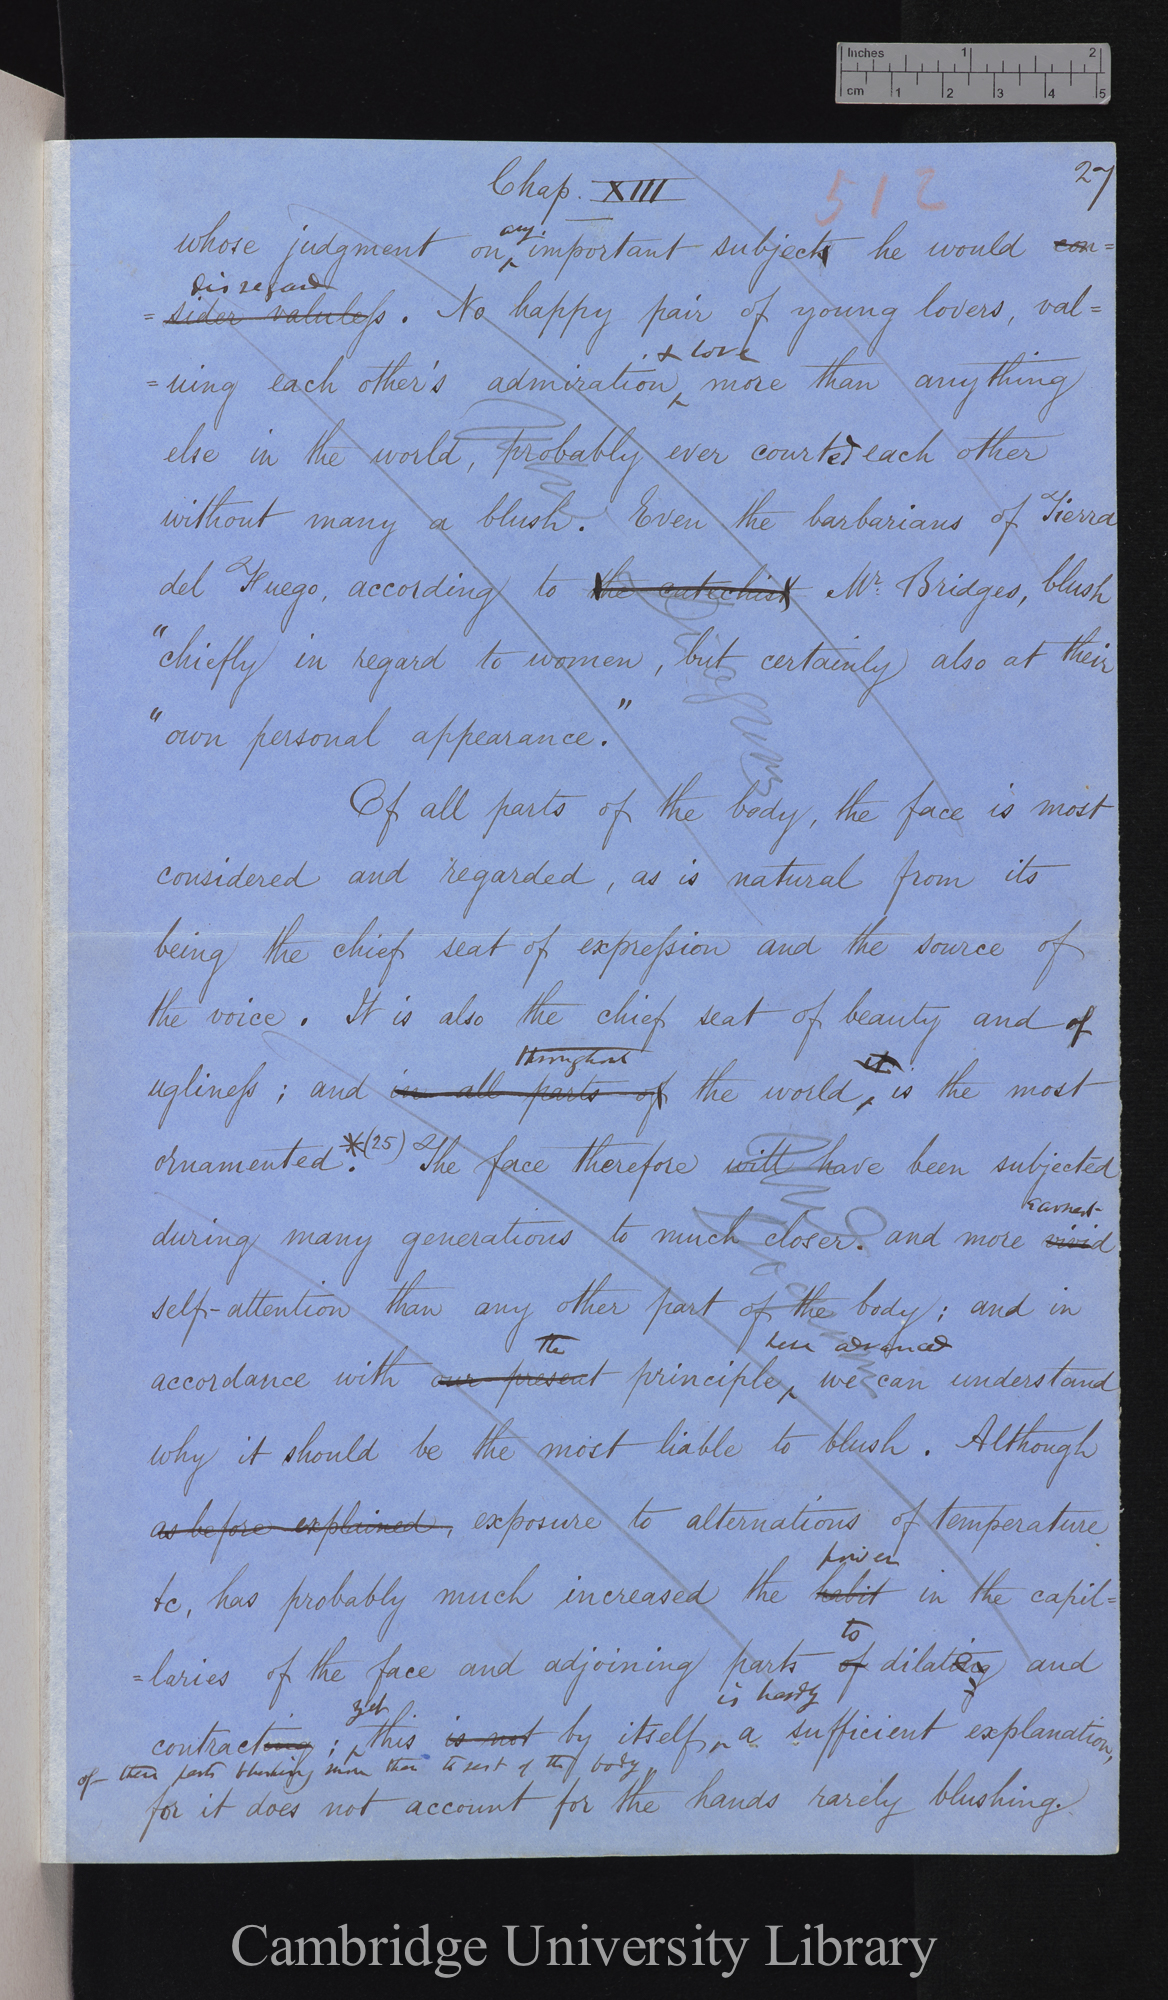 Inches 1 2
cm 1 2 3 4 5
Chap. XIII
512
27
any
whose judgment on important subjects he would con=
disregard
=sider valuless. No happy pair of young lovers, val=
& love
=uing each other's admiration, more than anything
else in the world, probably ever courted each other
without many a blush. Even the barbarians of Tierra
del Fuego, according to the catechist Mr. Bridges, blush
"chiefly in regard to women, but certainly also at their
"own personal appearance."
Of all parts of the body, the face is most
considered and regarded, as is natural from its
being the chief seat of expression and the source of
the voice. It is also the chief seat of beauty and of
throughout it
ugliness; and in all parts of the world, is the most
ornamented.*(25) The face therefore will have been subjected
earnest
during many generations to much closer and more vivid
self-attention than any other part of the body; and in
the here advanced
accordance with our present principle, we can understand
why it should be the most liable to blush. Although
as before explained, exposure to alternations of temperature
power
&c, has probably much increased the habit in the capil=
to
=laries of the face and adjoining parts of dilating and
yet is hardly
contracting; this is not by itself a sufficient explanation,
of these parts blushing more than the rest of the body
for it does not account for the hands rarely blushing.
Cambridge University Library